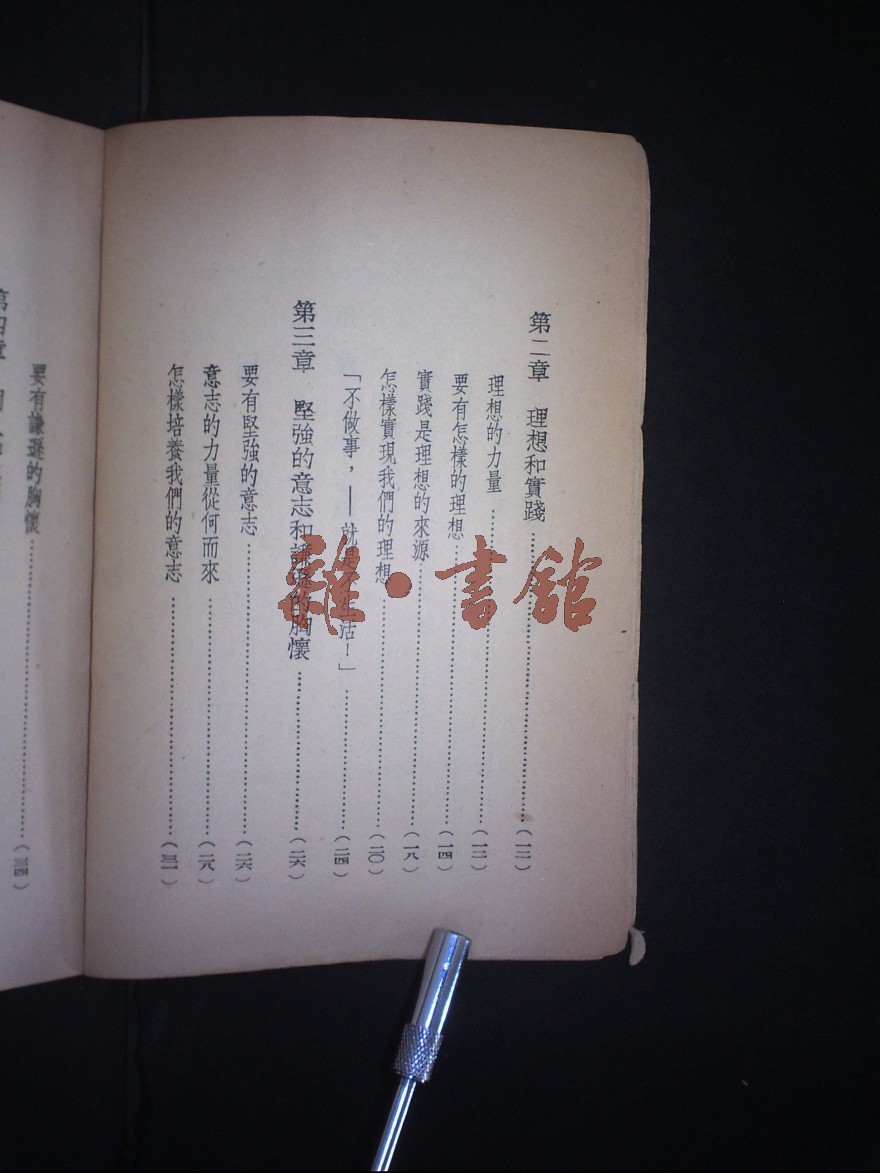 第二章　理想和實踐……(一二)
理想的力量……(一二)
要有怎樣的理想……(一四)
實踐是理想的來源……(一八)
怎樣實現我們的理想……(二〇)
「不做事，——就是不生活！」……(二四)
第三章　堅強的意志和謙遜的胸懷……(二六)
要有堅強的意志……(二六)
意志的力量從何而來……(二八)
怎樣培養我們的意志……(三一)
要有謙遜的胸懷……(三四)
第四章
雜·書館